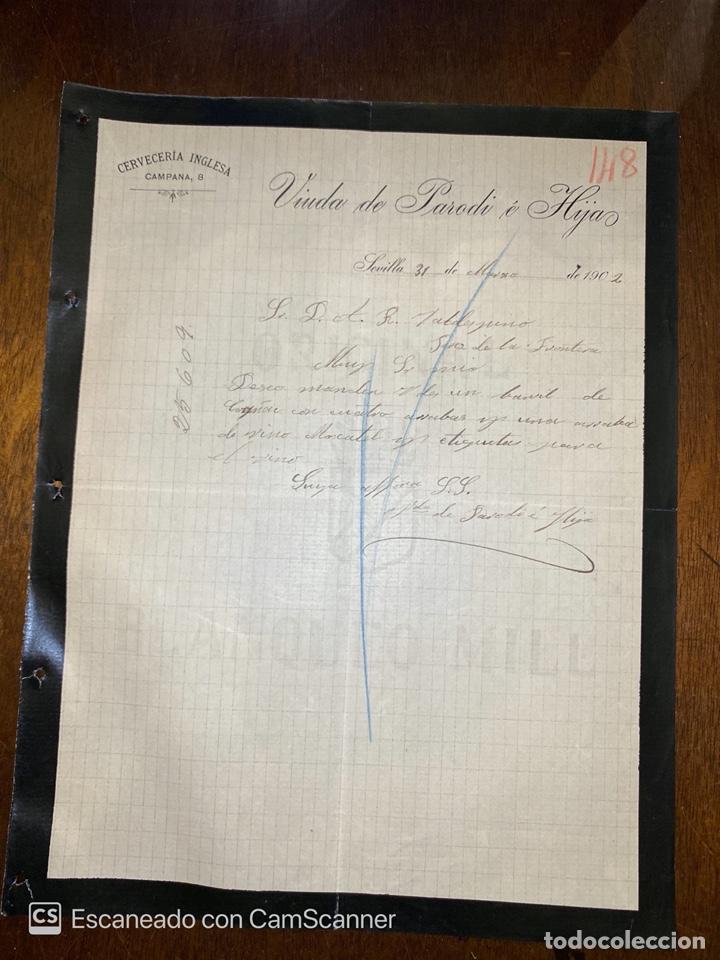 CERVECERÍA INGLESA
CAMPANA, 8
148
Viuda de Parodi é Hija
Sevilla 31 de Marzo de 1902
Sr. D. A. R. Valdespino
Jerez de la Frontera
25609
Muy Sr mio
Deseo manden Vdes un barril de
Cognac con cuatro arrobas y una arroba
de vino Moscatel y etiquetas para
el vino
Suya affma S.S.
Vda de Parodi é Hija
CS Escaneado con CamScanner
todocoleccion